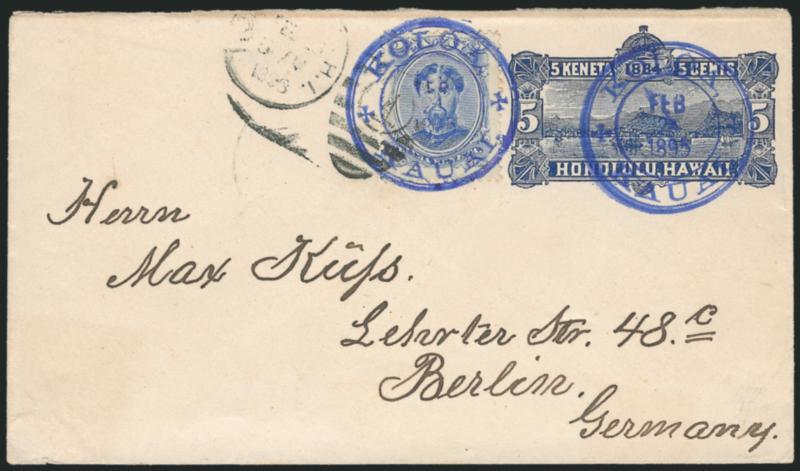 KOLOA
FEB
KAUAI
5 KENETA 1884 5 CENTS
5 5
HONOLULU, HAWAII.
KOLOA
FEB
1895
KAUAI
H.I.
Herrn
Max Küſs.
Lehrter Str. 48.c
Berlin.
Germany.